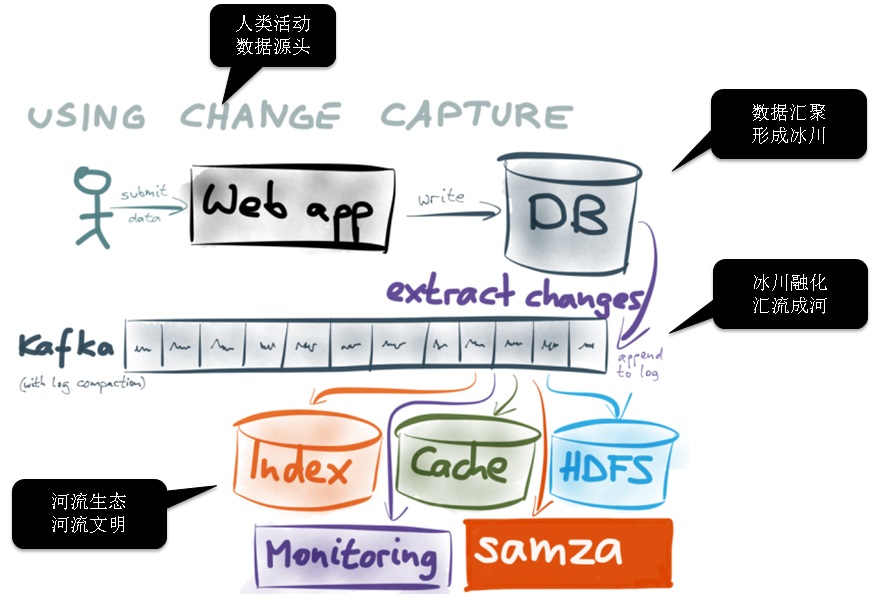 人类活动
数据源头
USING CHANGE CAPTURE
数据汇聚
形成冰川
submit
data
Web app
write
DB
extract changes
冰川融化
汇流成河
Kafka
(with log compaction)
append
to log
Index
Cache
HDFS
河流生态
河流文明
Monitoring
samza